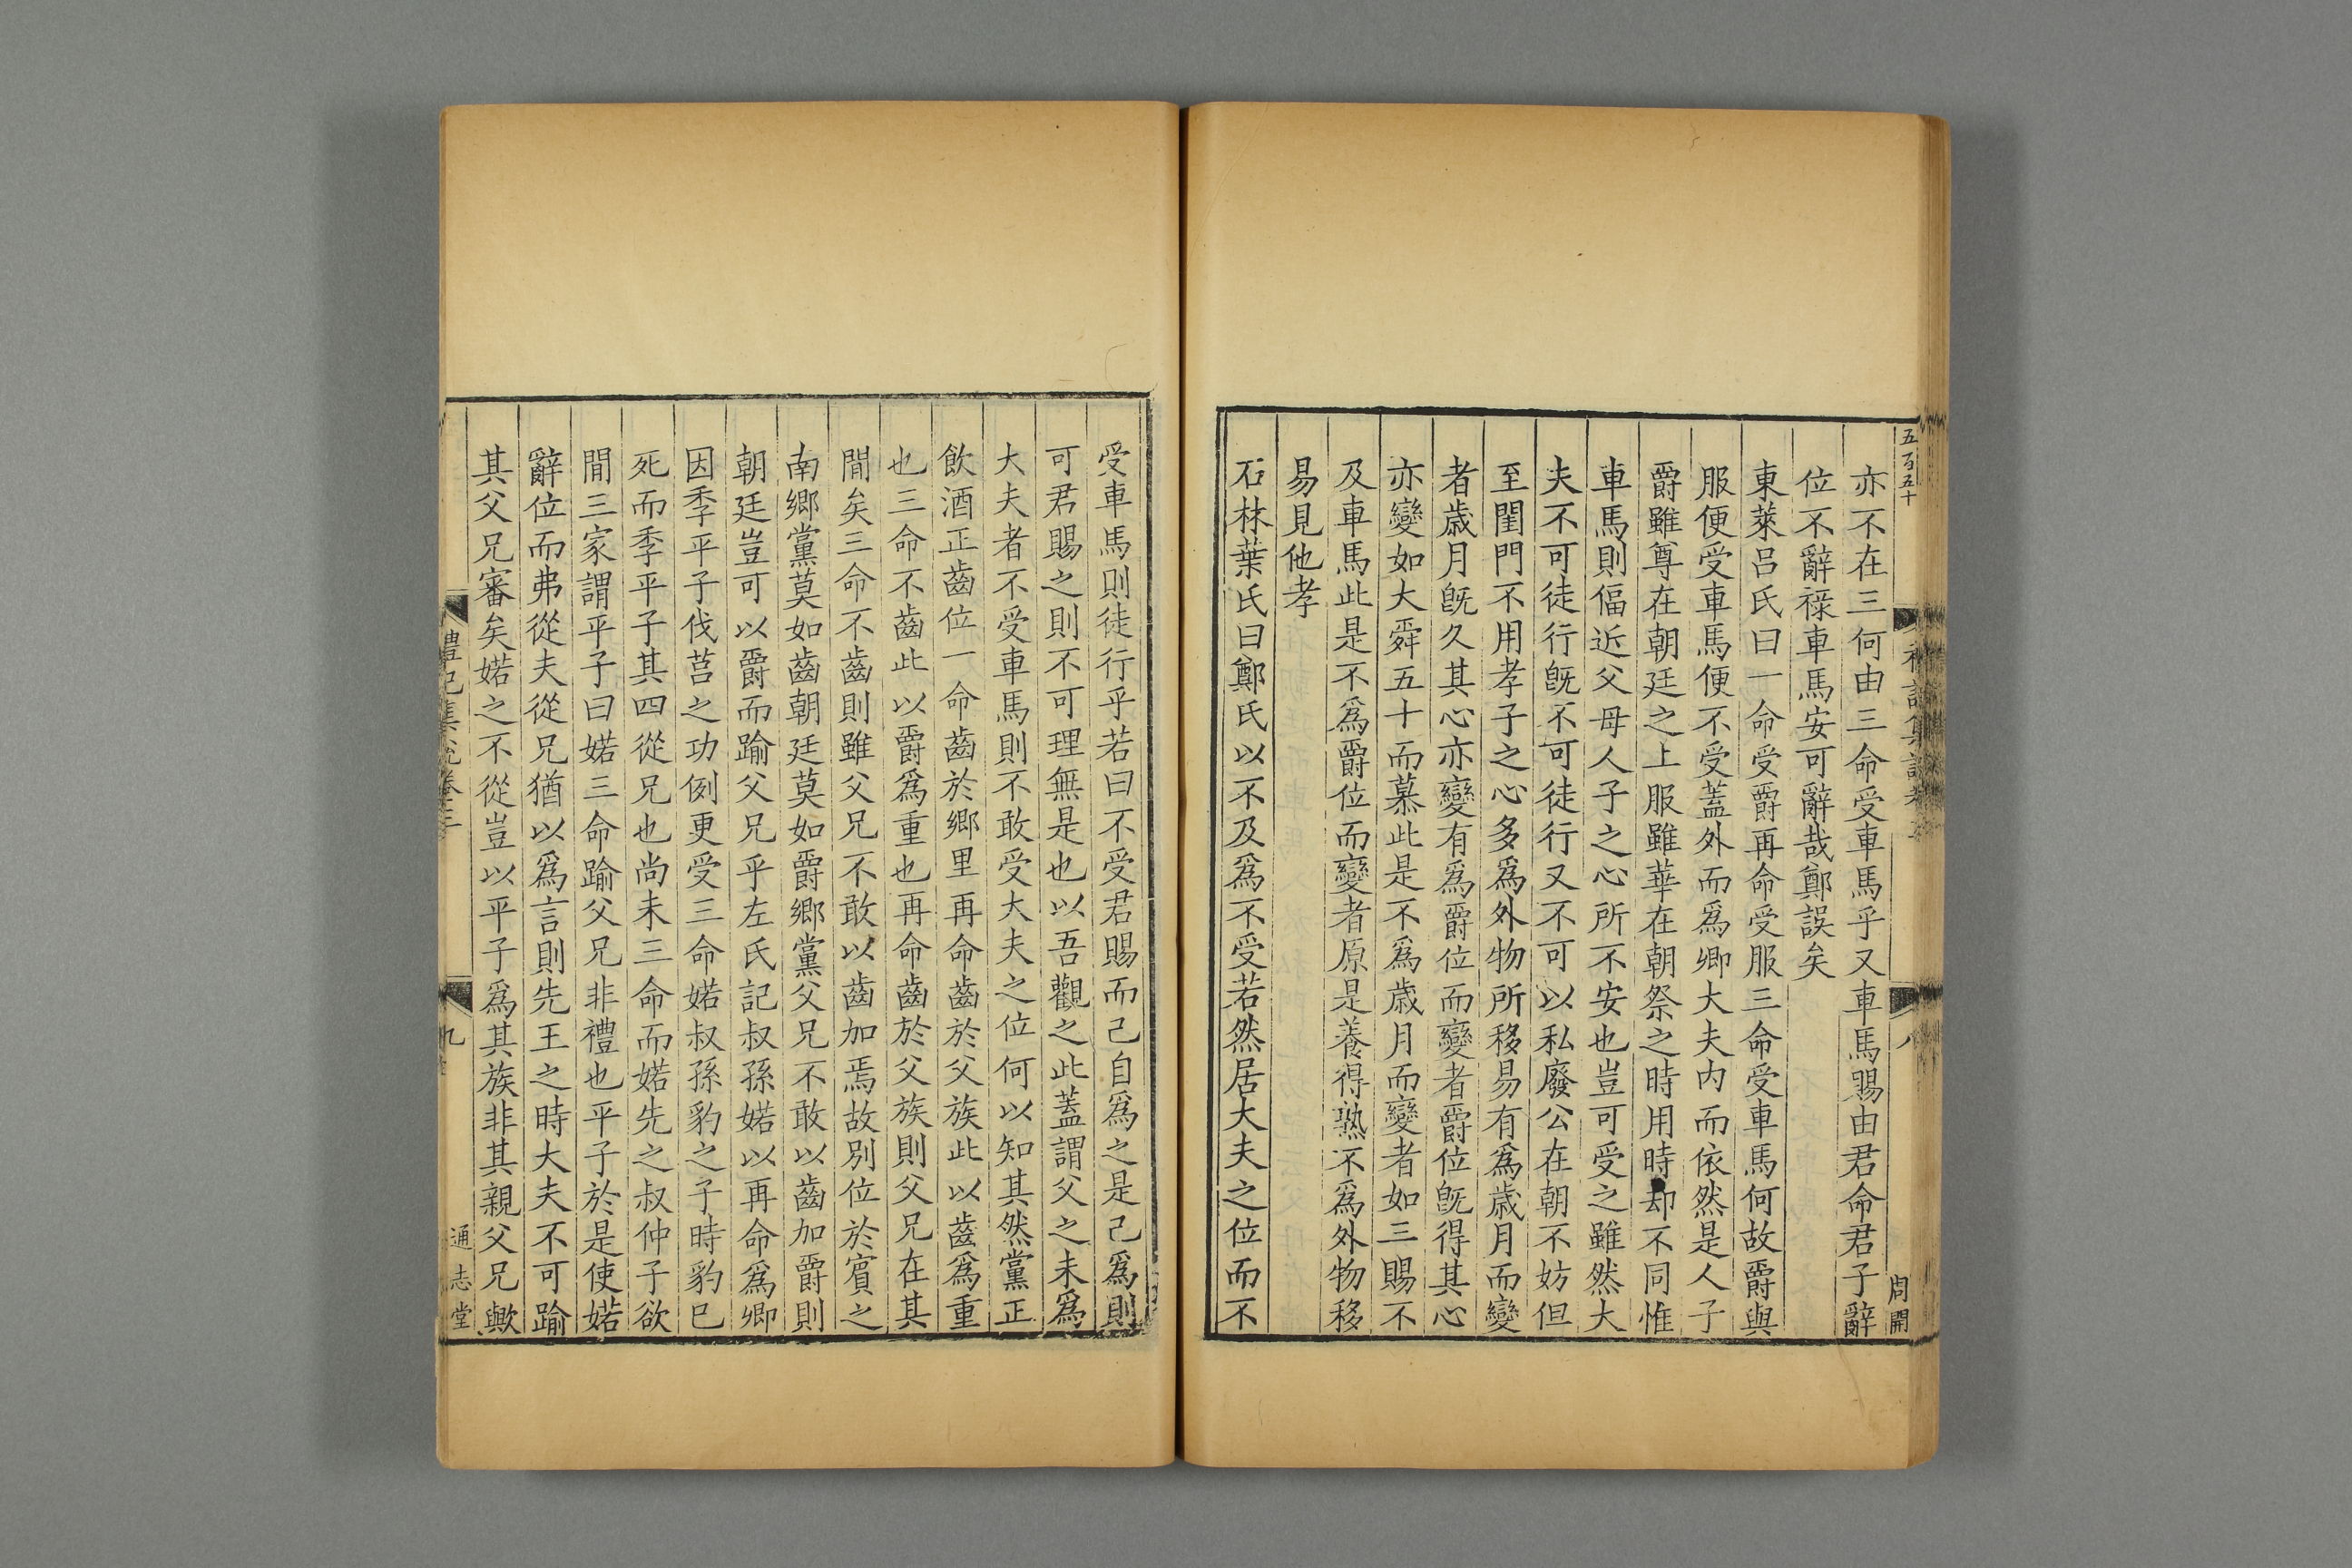 五百五十
八
亦不在三何由三命受車馬乎又車馬賜由君命君子辭
位不辭祿車馬安可辭哉鄭誤矣
東萊呂氏曰一命受爵再命受服三命受車馬何故爵與
服便受車馬便不受蓋外而爲卿大夫內而依然是人子
爵雖尊在朝廷之上服雖華在朝祭之時用時却不同惟
車馬則偪近父母人子之心所不安也豈可受之雖然大
夫不可徒行旣不可徒行又不可以私廢公在朝不妨但
至閨門不用孝子之心多爲外物所移易有爲歲月而變
者歲月旣久其心亦變有爲爵位而變者爵位旣得其心
亦變如大舜五十而慕此是不爲歲月而變者如三賜不
及車馬此是不爲爵位而變者原是養得熟不爲外物移
易見他孝
石林葉氏曰鄭氏以不及爲不受若然居大夫之位而不
受車馬則徒行乎若曰不受君賜而己自爲之是己爲則
可君賜之則不可理無是也以吾觀之此蓋謂父之未爲
大夫者不受車馬則不敢受大夫之位何以知其然黨正
飲酒正齒位一命齒於鄉里再命齒於父族此以齒爲重
也三命不齒此以爵爲重也再命齒於父族則父兄在其
閒矣三命不齒則雖父兄不敢以齒加焉故別位於賓之
南鄉黨莫如齒朝廷莫如爵鄉黨父兄不敢以齒加爵則
朝廷豈可以爵而踰父兄乎左氏記叔孫婼以再命爲卿
因季平子伐莒之功例更受三命婼叔孫豹之子時豹巳
死而季平子其四從兄也尚未三命而婼先之叔仲子欲
閒三家謂平子曰婼三命踰父兄非禮也平子於是使婼
辭位而弗從夫從兄猶以爲言則先王之時大夫不可踰
其父兄審矣婼之不從豈以平子爲其族非其親父兄歟
禮記集說卷三
九
通志堂